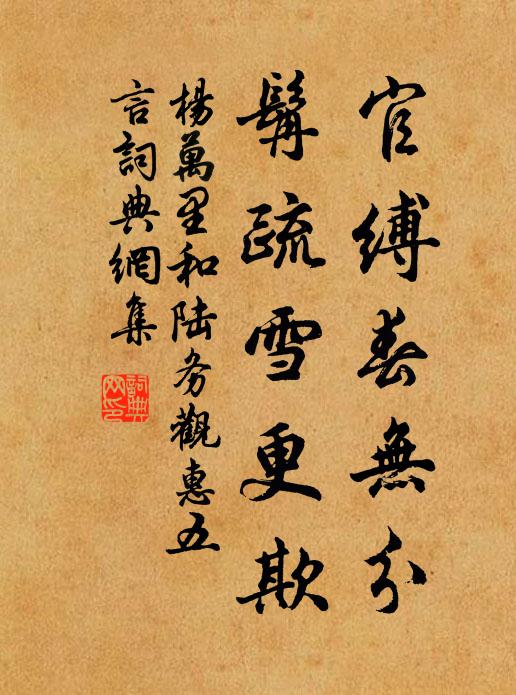 官縛春無分
鬢疏雪更欺
楊萬里和陸務觀惠五
言詞典網集
詞典
網印